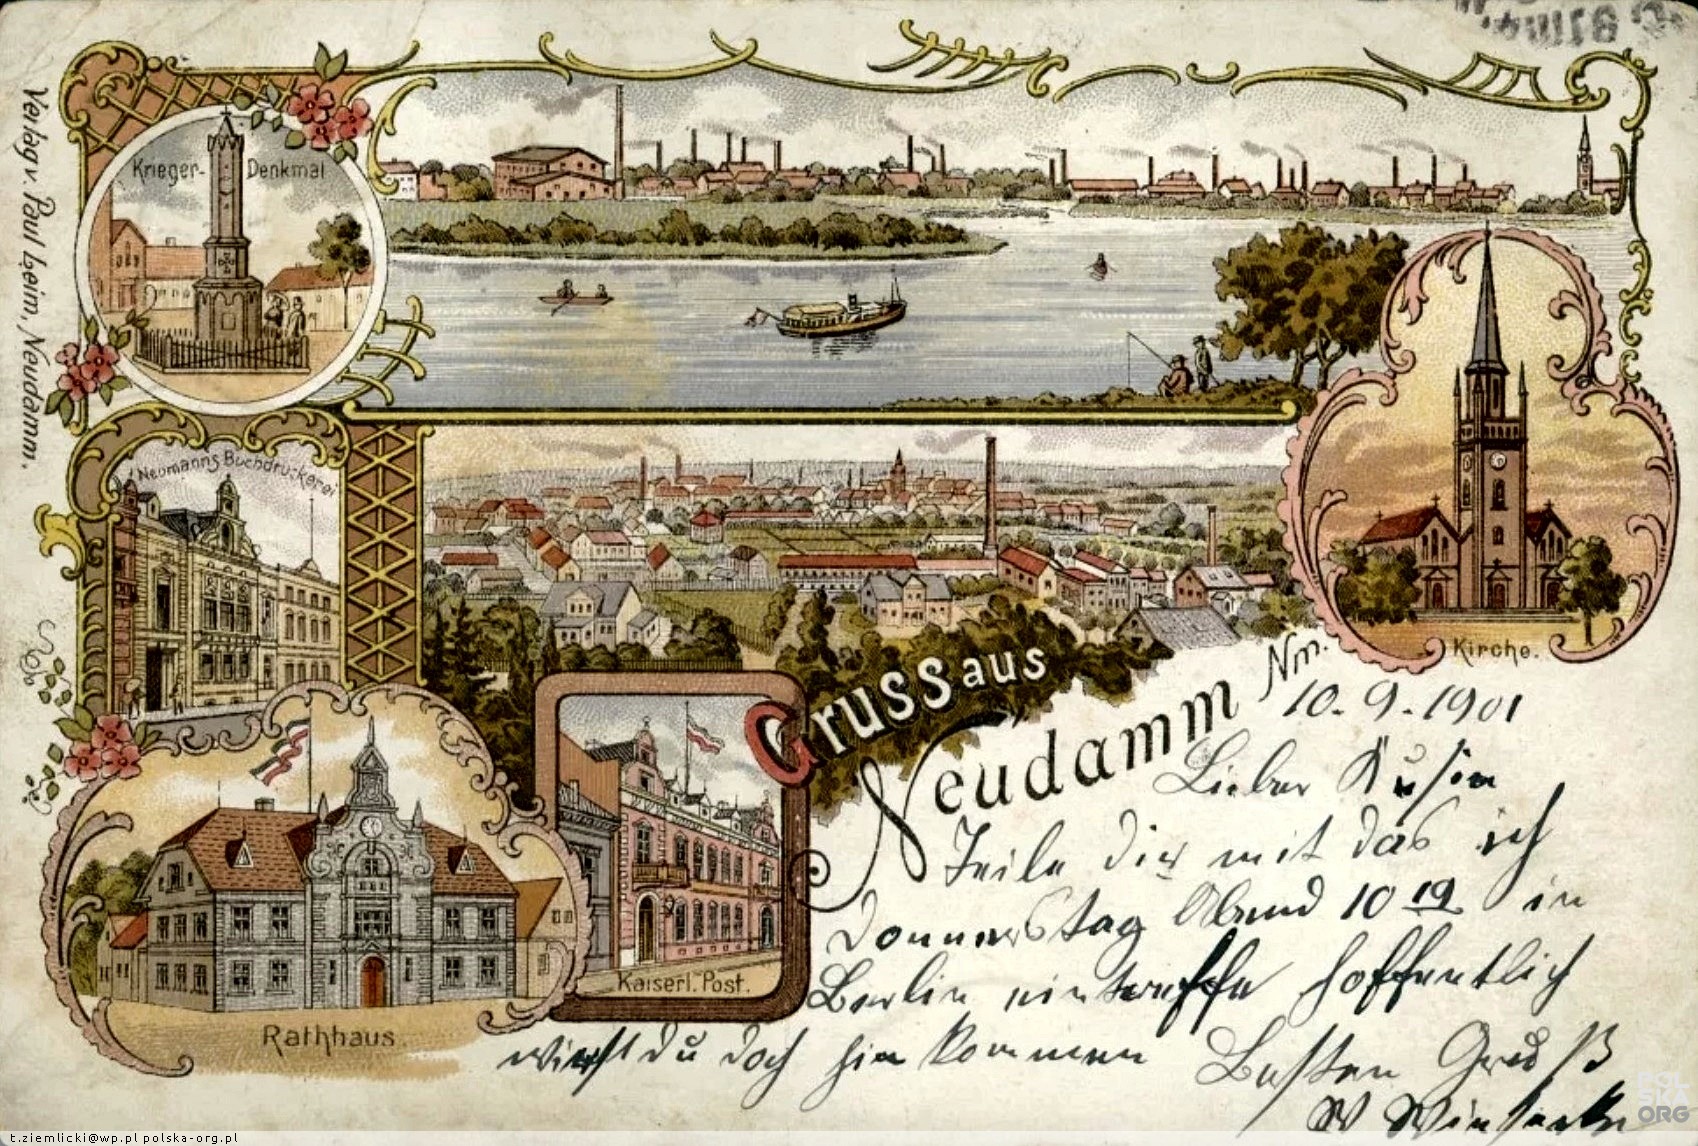 Verlag v. Paul Heim, Neudamm.
Krieger-Denkmal
Neumanns Buchdruckerei
Kirche.
Gruss aus
Neudamm Nm.
Kaiserl. Post.
Rathhaus.
10.9.1901
Lieber Kusin
Teile dir mit das ich
Donnerstag Abend 10 19 in
Berlin eintreffe hoffentlich
wirst du doch hin kommen
Besten Gruß
W
POLSKA.ORG
t.ziemlicki@wp.pl polska-org.pl